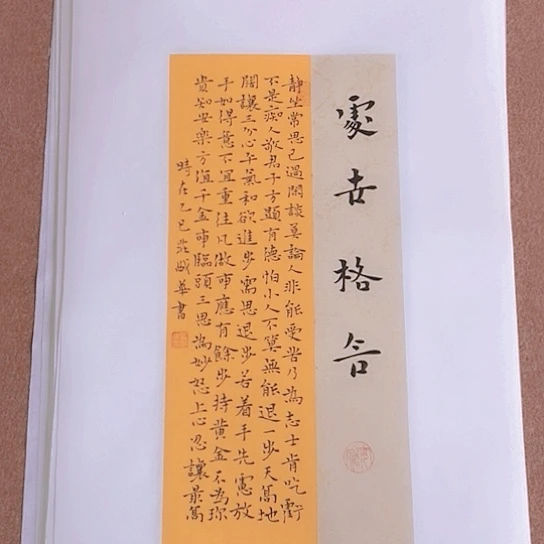 處世格言
静坐常思己過閑談莫論人非能受苦乃為志士肯吃虧
不是痴人敬君子方顯有德怕小人不算無能退一步天高地
闊讓三分心平氣和欲進步需思退步若着手先慮放
手如得意不宜重往凡做事應有餘步持黃金不為珍
貴知安樂方值千金事臨頭三思為妙怒上心忍讓最高
時在乙巳華書